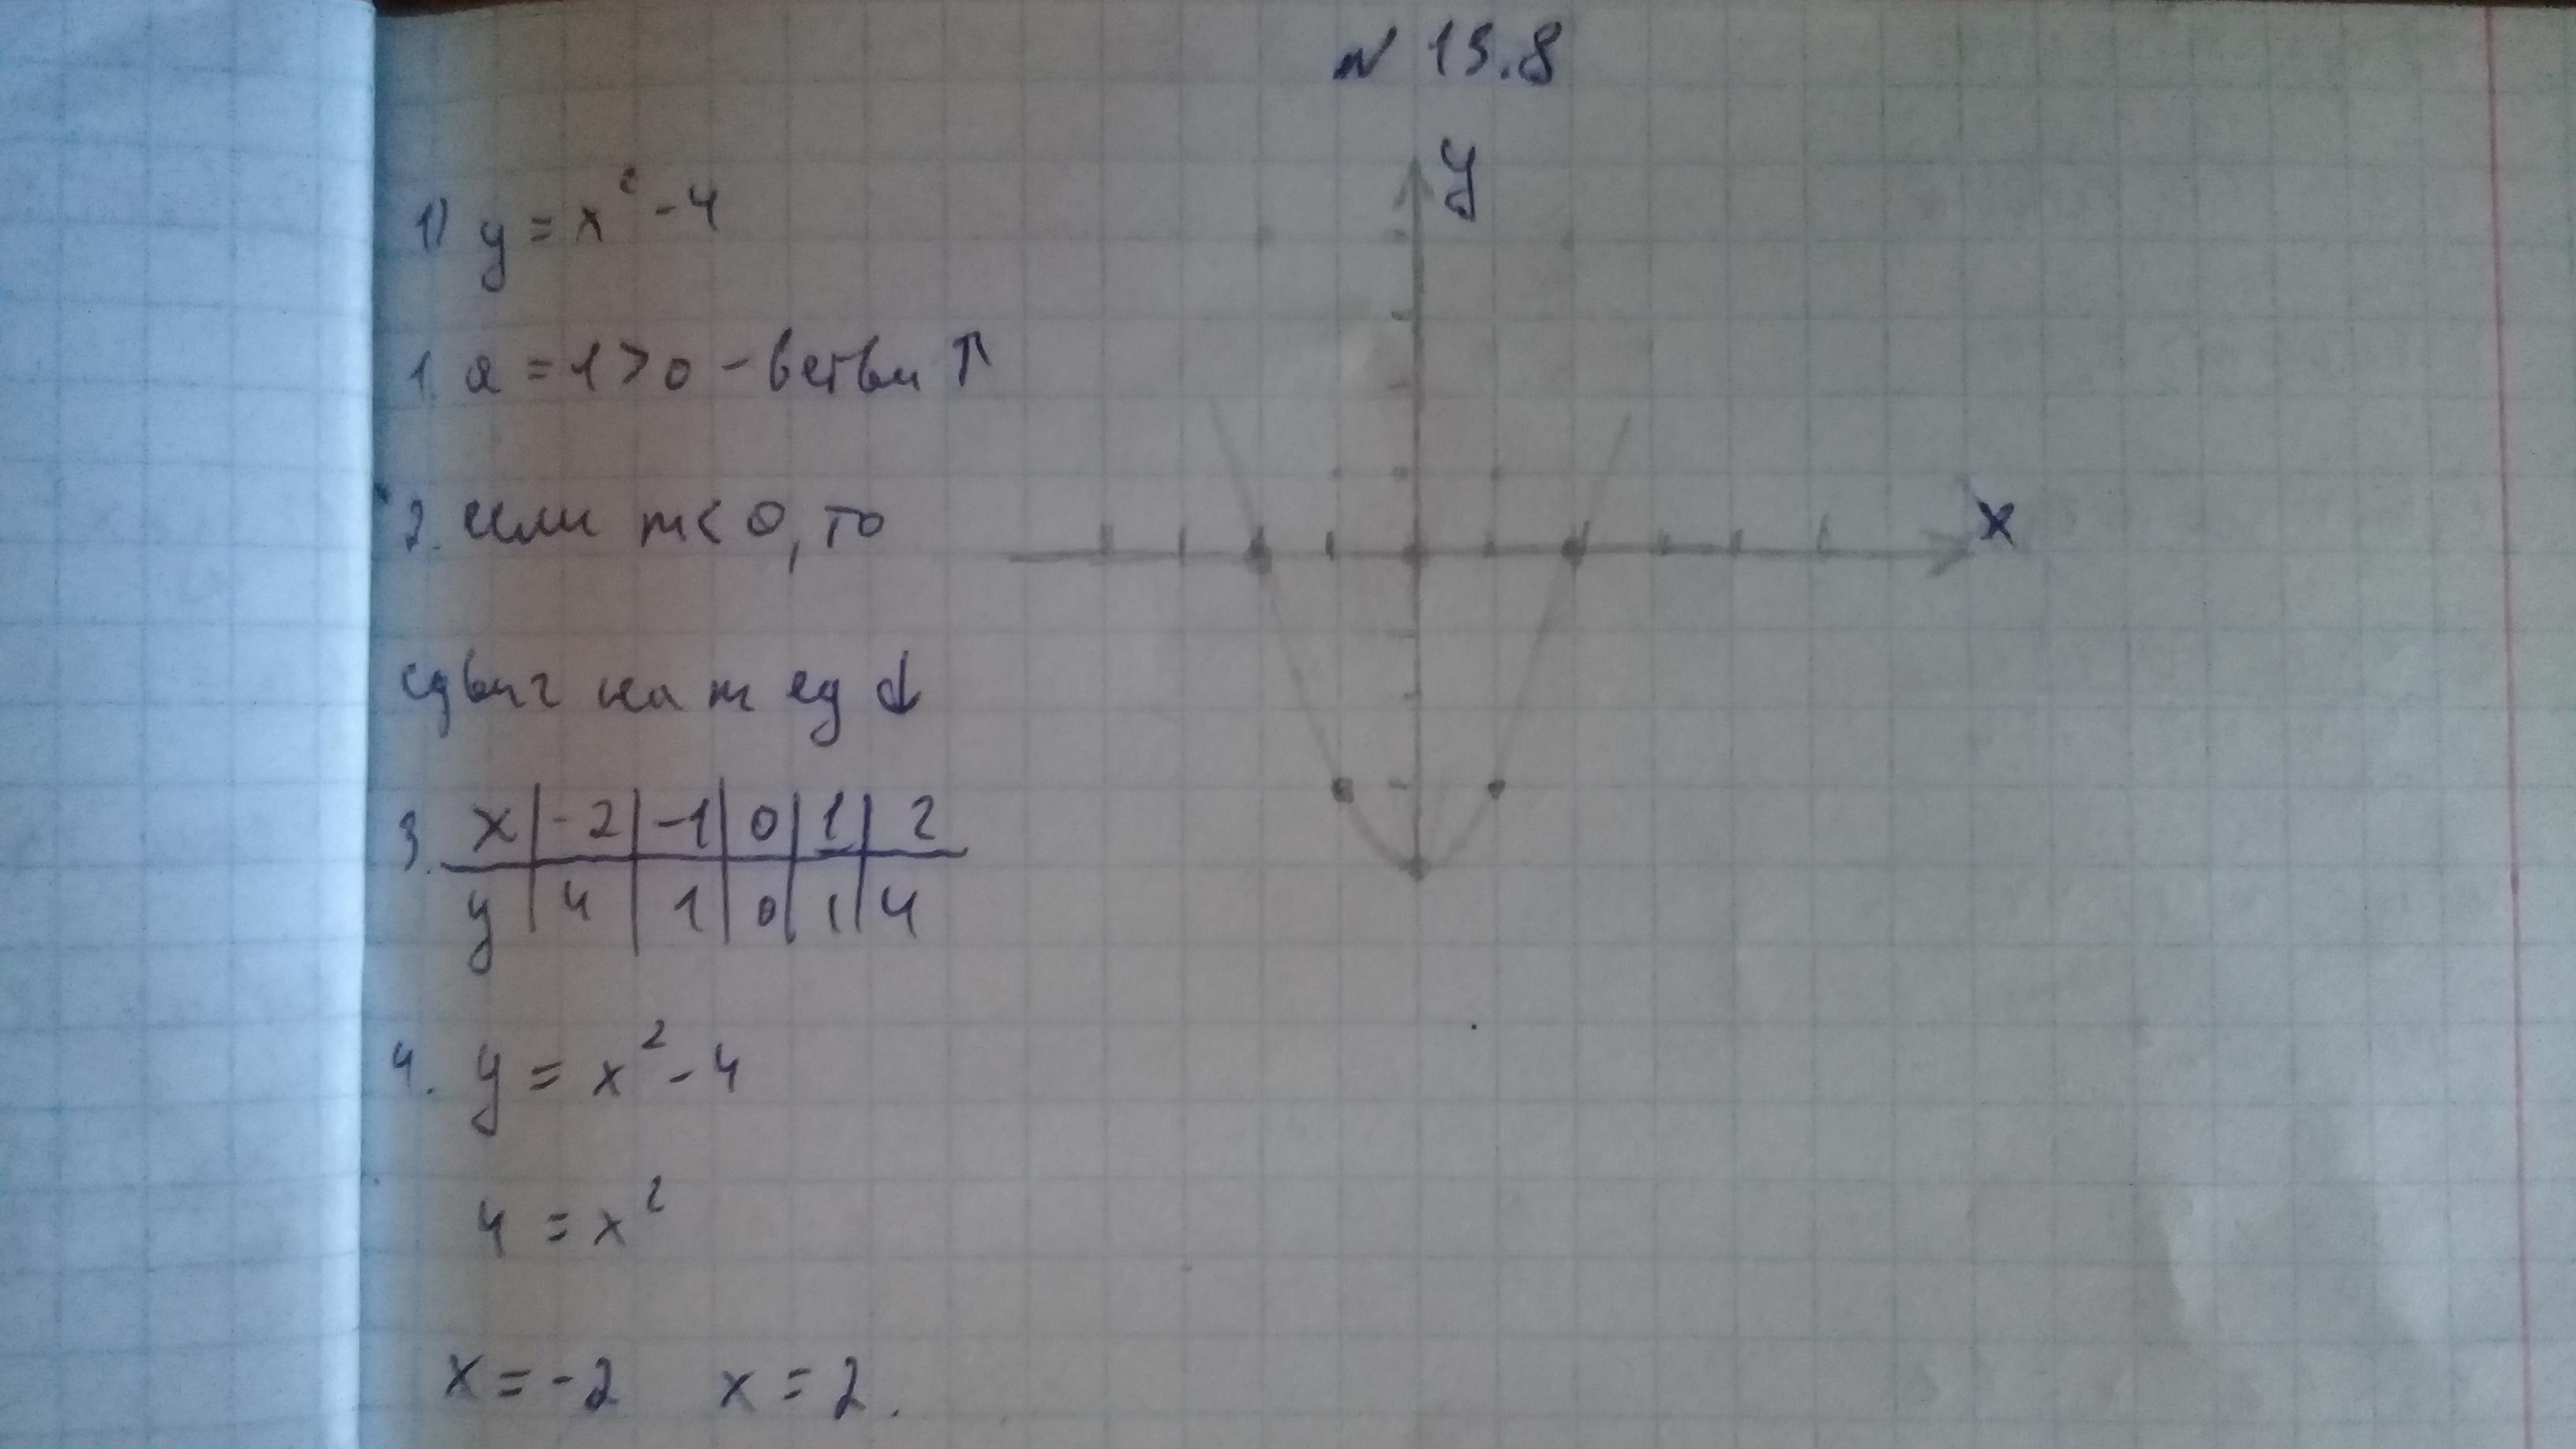 N 13.8
1) y = x² - 4
1. a = 1 > 0 - ветви ↑
2. если m < 0, то
сдвиг на m ед ↓
3. x | -2 | -1 | 0 | 1 | 2
y | 4 | 1 | 0 | 1 | 4
4. y = x² - 4
4 = x²
x = -2 x = 2.
y
x